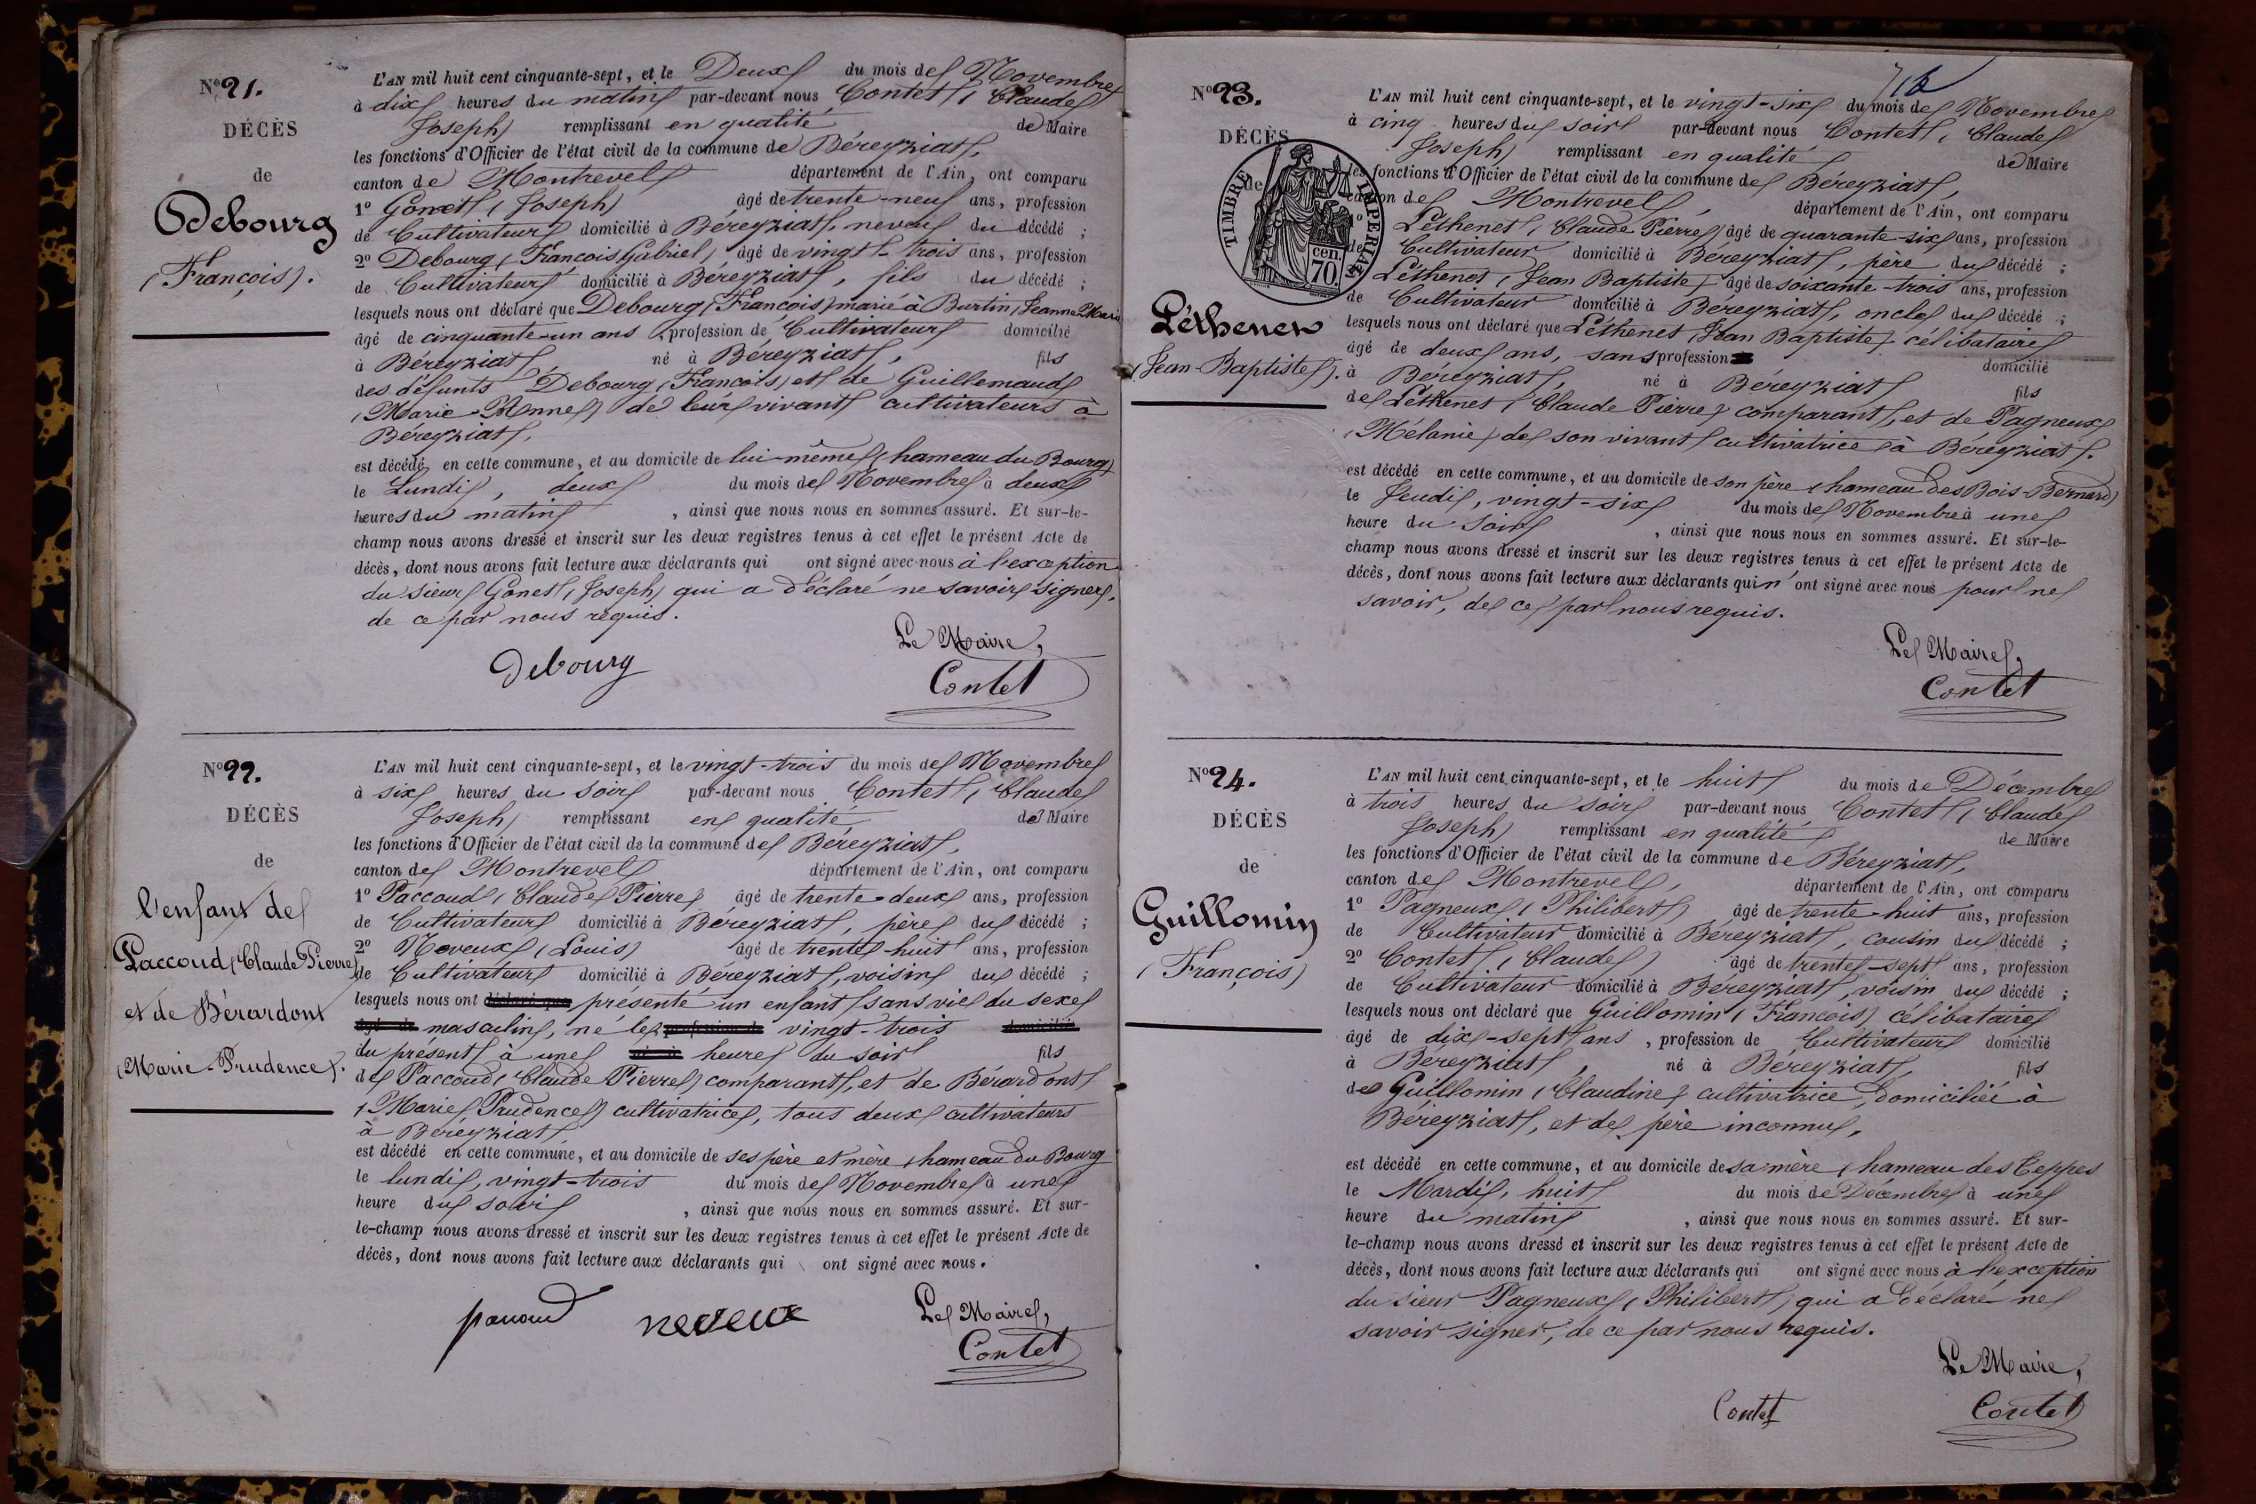 N° 21.
DÉCÈS
de
Debourg
(François).
L'AN mil huit cent cinquante-sept, et le Deux du mois de Novembre
à dix heures du matin par-devant nous Contet (Claude
Joseph) remplissant en qualité de Maire
les fonctions d'Officier de l'état civil de la commune de Béreyziat,
canton de Montrevel département de l'Ain, ont comparu
1° Gonet (Joseph) âgé de trente-neuf ans, profession
de Cultivateur domicilié à Béreyziat, neveu du décédé ;
2° Debourg (François Gabriel) âgé de vingt-trois ans, profession
de Cultivateur domicilié à Béreyziat, fils du décédé ;
lesquels nous ont déclaré que Debourg (François) marié à Burtin (Jeanne Marie
âgé de cinquante-un ans, profession de Cultivateur domicilié
à Béreyziat, né à Béreyziat, fils
des défunts Debourg (François) et de Guillemaud
(Marie-Anne) de leur vivant cultivateurs à
Béreyziat,
est décédé en cette commune, et au domicile de lui-même (hameau du Bourg)
le Lundi, deux du mois de Novembre à deux
heures du matin, ainsi que nous nous en sommes assuré. Et sur-le-
champ nous avons dressé et inscrit sur les deux registres tenus à cet effet le présent Acte de
décès, dont nous avons fait lecture aux déclarants qui ont signé avec nous à l'exception
du sieur Gonet (Joseph) qui a déclaré ne savoir signer,
de ce par nous requis.
Le Maire,
Debourg Contet
N° 22.
DÉCÈS
de
l'enfant de
Paccoud (Claude Pierre)
et de Bérardont
(Marie-Prudence).
L'AN mil huit cent cinquante-sept, et le vingt-trois du mois de Novembre
à six heures du soir par-devant nous Contet (Claude
Joseph) remplissant en qualité de Maire
les fonctions d'Officier de l'état civil de la commune de Béreyziat,
canton de Montrevel département de l'Ain, ont comparu
1° Paccoud (Claude Pierre) âgé de trente-deux ans, profession
de Cultivateur domicilié à Béreyziat, père du décédé ;
2° Neveux (Louis) âgé de trente-huit ans, profession
de Cultivateur domicilié à Béreyziat, voisin du décédé ;
lesquels nous ont présenté un enfant sans vie du sexe
masculin, né le vingt-trois
du présent à une heure du soir fils
de Paccoud (Claude Pierre) comparant, et de Bérardont
(Marie Prudence) cultivatrice, tous deux cultivateurs
à Béreyziat
est décédé en cette commune, et au domicile de ses père et mère (hameau du Bourg
le lundi, vingt-trois du mois de Novembre à une
heure du soir, ainsi que nous nous en sommes assuré. Et sur-
le-champ nous avons dressé et inscrit sur les deux registres tenus à cet effet le présent Acte de
décès, dont nous avons fait lecture aux déclarants qui ont signé avec nous.
Le Maire,
paccoud neveux Contet
N° 23.
DÉCÈS
de
Péthenet
(Jean-Baptiste).
TIMBRE IMPERIAL
70. cen.
L'AN mil huit cent cinquante-sept, et le vingt-six du mois de Novembre
à cinq heures du soir par-devant nous Contet (Claude
Joseph) remplissant en qualité de Maire
les fonctions d'Officier de l'état civil de la commune de Béreyziat,
canton de Montrevel, département de l'Ain, ont comparu
Péthenet (Claude Pierre) âgé de quarante-six ans, profession
de Cultivateur domicilié à Béreyziat, père du décédé ;
Péthenet (Jean Baptiste) âgé de soixante-trois ans, profession
de Cultivateur domicilié à Béreyziat, oncle du décédé ;
lesquels nous ont déclaré que Péthenet (Jean Baptiste) célibataire
âgé de deux ans, sans profession domicilié
à Béreyziat, né à Béreyziat fils
de Péthenet (Claude Pierre) comparant, et de Pagneux
(Mélanie) de son vivant cultivatrice à Béreyziat.
est décédé en cette commune, et au domicile de son père (hameau des Bois-Bernard)
le Jeudi, vingt-six du mois de Novembre à une
heure du soir, ainsi que nous nous en sommes assuré. Et sur-le-
champ nous avons dressé et inscrit sur les deux registres tenus à cet effet le présent Acte de
décès, dont nous avons fait lecture aux déclarants qui n'ont signé avec nous pour ne
savoir, de ce par nous requis.
Le Maire,
Contet
N° 24.
DÉCÈS
de
Guillomin
(François)
L'AN mil huit cent cinquante-sept, et le huit du mois de Décembre
à trois heures du soir par-devant nous Contet (Claude
Joseph) remplissant en qualité de Maire
les fonctions d'Officier de l'état civil de la commune de Béreyziat,
canton de Montrevel, département de l'Ain, ont comparu
1° Pagneux (Philibert) âgé de trente-huit ans, profession
de Cultivateur domicilié à Béreyziat, cousin du décédé ;
2° Contet (Claude) âgé de trente-sept ans, profession
de Cultivateur domicilié à Béreyziat, voisin du décédé ;
lesquels nous ont déclaré que Guillomin (François) célibataire
âgé de dix-sept ans, profession de Cultivateur domicilié
à Béreyziat, né à Béreyziat, fils
de Guillomin (Claudine) cultivatrice, domiciliée à
Béreyziat, et de père inconnu,
est décédé en cette commune, et au domicile de sa mère (hameau des Teppes
le Mardi, huit du mois de Décembre à une
heure du matin, ainsi que nous nous en sommes assuré. Et sur-
le-champ nous avons dressé et inscrit sur les deux registres tenus à cet effet le présent Acte de
décès, dont nous avons fait lecture aux déclarants qui ont signé avec nous à l'exception
du sieur Pagneux (Philibert) qui a déclaré ne
savoir signer, de ce par nous requis.
Le Maire,
Contet Contet